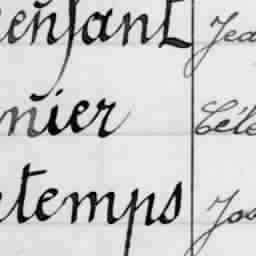 enfant Jea
nier Céle
etemps Jos